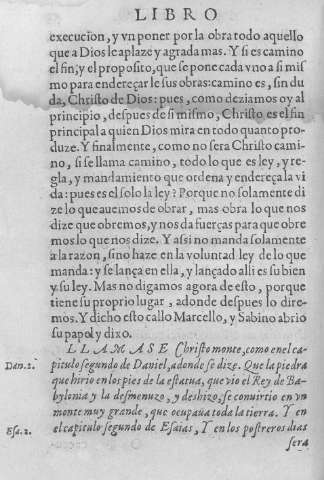 LIBRO
execucion, y vn poner por la obra todo aquello
que a Dios le aplaze y agrada mas. Y si es camino
el fin, y el proposito, que se pone cada vno a si mis
mo para endereçar le sus obras: camino es, sin du
da, Christo de Dios: pues, como deziamos oy al
principio, despues de si mismo, Christo es el fin
principal a quien Dios mira en todo quanto pro-
duze. Y finalmente, como no sera Christo cami-
no, si se llama camino, todo lo que es ley, y re-
gla, y mandamiento que ordena y endereça la vi
da: pues es el solo la ley? Porque no solamente di
ze lo que auemos de obrar, mas obra lo que nos
dize que obremos, y nos da fuerças para que obre
mos lo que nos dize. Y assi no manda solamente
a la razon, sino haze en la voluntad ley de lo que
manda: y se lança en ella, y lançado alli es su bien
y su ley. Mas no digamos agora de esto, porque
tiene su proprio lugar, adonde despues lo dire-
mos. Y dicho esto callo Marcello, y Sabino abrio
su papel y dixo.
LLAMASE Christo monte, como en el ca-
Dan. 2. pitulo segundo de Daniel, adonde se dize. Que la piedra
que hirio en los pies de la estatua, que vio el Rey de Ba-
bylonia y la desmenuzo, y deshizo, se conuirtio en vn
monte muy grande, que ocupaua toda la tierra. Y en
Esa. 2. el capitulo segundo de Esaias, Y en los postreros dias
sera